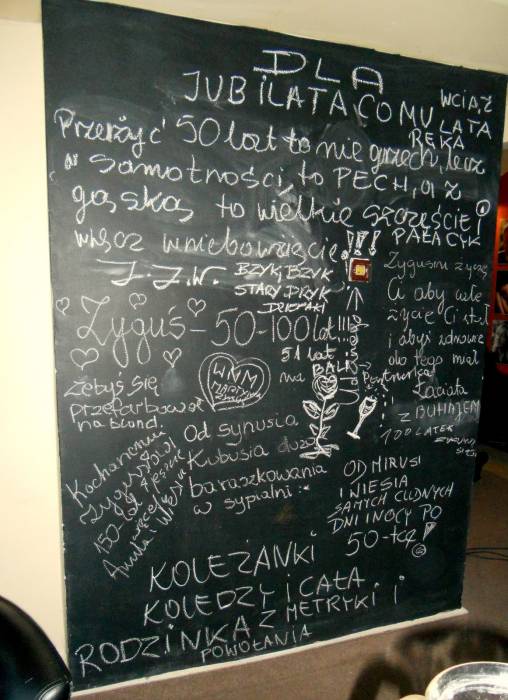 DLA
JUBILATA CO MU WCIĄŻ
LATA
RĘKA
Przeżyć 50 lat to nie grzech, lecz
w samotności, to PECH, a z
gąską to wielkie szczęście!
PAŁACYK
więc wniebowzięcie!!!
J.J.W. BZYK, BZYK
STARY PRYK
Zyguś - 50-100 lat!!!
51 lat
na BALK
WNM
Zygusiu życzę
Ci aby całe
życie Ci stał
i abyś zdrowie
do tego miał
Partnerka
Łaciata
Z BUHAJEM
100 LATEK
żebyś się
przefarbował
na blond.
Od synusia
Kubusia dużo
baraszkowania
w sypialni :*
Kochanemu
Zygusiowi
150-lat
OD MIRUSI
I NIESIA
SAMYCH CUDNYCH
DNI I NOCY PO
50-tce
KOLEŻANKI
KOLEDZY I CAŁA
RODZINKA Z METRYKI I
POWOŁANIA